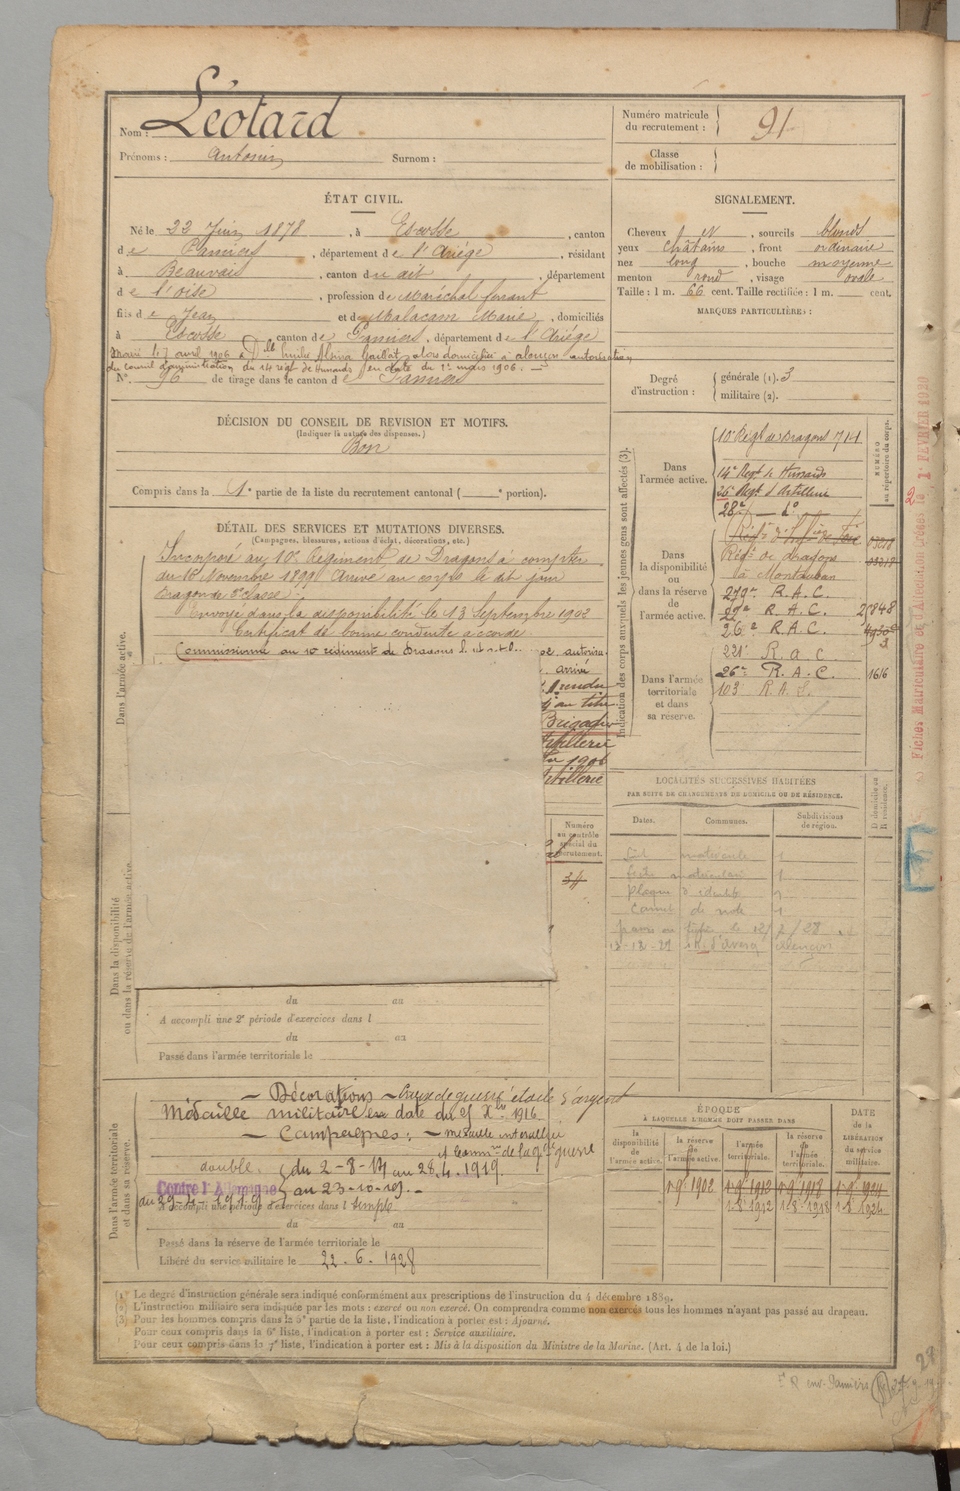 Nom : Léotard
Prénoms : Antonin Surnom :
Numéro matricule du recrutement : 91
Classe de mobilisation :
ÉTAT CIVIL.
Né le 22 Juin 1878, à Escosse, canton
de Pamiers, département de l'Ariége, résidant
à Beauvais, canton du dit, département
de l'Oise, profession de Maréchal ferrant
fils de Jean et de Malacam Marie, domiciliés
à Escosse, canton de Pamiers, département de l'Ariége
Marié le 7 avril 1906 à Dlle Emilie Gaillot, alors domiciliée à alençon, autorisation
du conseil d'administration du 14 régt de Hussards en date du 1er mars 1906.
N° 96 de tirage dans le canton de Pamiers
SIGNALEMENT.
Cheveux et, sourcils blonds
yeux châtains, front ordinaire
nez long, bouche moyenne
menton rond, visage ovale
Taille : 1 m. 66 cent. Taille rectifiée : 1 m. cent.
MARQUES PARTICULIÈRES :
Degré d'instruction : générale (1). 3
militaire (2).
DÉCISION DU CONSEIL DE REVISION ET MOTIFS.
(Indiquer la nature des dispenses.)
Bon
Compris dans la 1e partie de la liste du recrutement cantonal ( e portion).
DÉTAIL DES SERVICES ET MUTATIONS DIVERSES.
(Campagnes, blessures, actions d'éclat, décorations, etc.)
Dans l'armée active.
Incorporé au 10e Régiment de Dragons à compter
du 16 Novembre 1899 Arrivé au corps le dit jour
Dragon de 2e classe.
Envoyé dans la disponibilité le 13 Septembre 1902
Certificat de bonne conduite accordé
Commissionné au 10 régiment de Dragons
02, autorisa
arrivé
rendu
au titre
Brigadier
rtillerie
1906
rtillerie
Indication des corps auxquels les jeunes gens sont affectés (3).
NUMÉRO au répertoire du corps.
Dans l'armée active.
10e Régt de Dragons 714
14e Regt de Hussards
26e Regt d'Artillerie
28e — do
Dans la disponibilité ou dans la réserve de l'armée active.
Régt de dragons
à Montauban
279e R.A.C.
R.A.C. 2/848
26e R.A.C.
Dans l'armée territoriale et dans sa réserve.
221e R.A.C
26e R.A.C. 1616
103 R.A.L.
2 Fiches Matriculaire et d'Affectation créées le 1er FEVRIER 1920
LOCALITÉS SUCCESSIVES HABITÉES
PAR SUITE DE CHANGEMENTS DE DOMICILE OU DE RÉSIDENCE.
Dates. Communes. Subdivisions de région. D domicile ou R résidence.
matricule 1
fiche matricule 1
Plaque d'identité
Carnet de
13-12-29 alençon
Numéro au contrôle spécial du recrutement.
34
Dans la disponibilité ou dans la réserve de l'armée active.
du au
A accompli une 2e période d'exercices dans l
du au
Passé dans l'armée territoriale le
Dans l'armée territoriale et dans sa réserve.
— Décorations — Croix de guerre étoile d'argent
Médaille militaire en date du 25 Xbre 1916
— Campagnes : — médaille interalliée
et Comm. de la gde guerre
double : du 2-8-14 au 28.4.1919.
Contre l'Allemagne au 23-10-19. —
du 29-4-1919 simple
A accompli une période d'exercices dans l
du au
Passé dans la réserve de l'armée territoriale le
Libéré du service militaire le 22.6.1928
ÉPOQUE
À LAQUELLE L'HOMME DOIT PASSER DANS
la disponibilité de l'armée active. la réserve de l'armée active. l'armée territoriale. la réserve de l'armée territoriale.
DATE de la LIBÉRATION du service militaire.
1-9-1902 1-9-1912 1-9-1918 1-9-1924
1-8-1912 1-8-1918 1-8-1924
(1) Le degré d'instruction générale sera indiqué conformément aux prescriptions de l'instruction du 4 décembre 1889.
(2) L'instruction militaire sera indiquée par les mots : exercé ou non exercé. On comprendra comme non exercés tous les hommes n'ayant pas passé au drapeau.
(3) Pour les hommes compris dans la 5e partie de la liste, l'indication à porter est : Ajourné.
Pour ceux compris dans la 6e liste, l'indication à porter est : Service auxiliaire.
Pour ceux compris dans la 7e liste, l'indication à porter est : Mis à la disposition du Ministre de la Marine. (Art. 4 de la loi.)